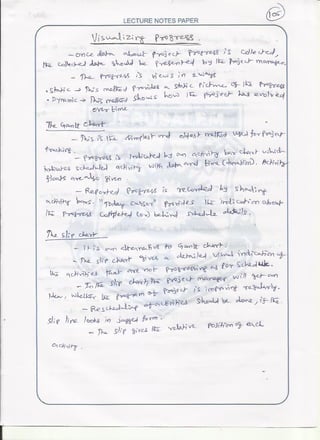 105
LECTURE NOTES PAPER
Visualizing Progress.
- once data about project progress is collected,
the collected data should be presented by the project manager.
- The progress is views in 2 ways
• static → This method provides a static picture of the progress
• Dynamic → This method shows how the project has evolved
over time
The Gantt chart
- This is the simplest and oldest method used for project
tracking.
- progress is indicated by an activity bar chart which
indicates scheduled activity with date and time (duration). Activity
floats are also given
- Reported progress is recorded by shading
activity bars. "Today cursor" provides the indication about
the progress completed (or) behind schedule details.
The slip chart
- It is an alternative to Gantt chart.
- The slip chart gives a detailed visual indication of
the activities that are not progressing as per schedule.
- In the slip chart, the project manager will get an
idea, whether the program of project is improving regularly.
- Rescheduling of activities should be done, if the
slip line looks in jagged form.
- The slip gives the relative position of each
activity.